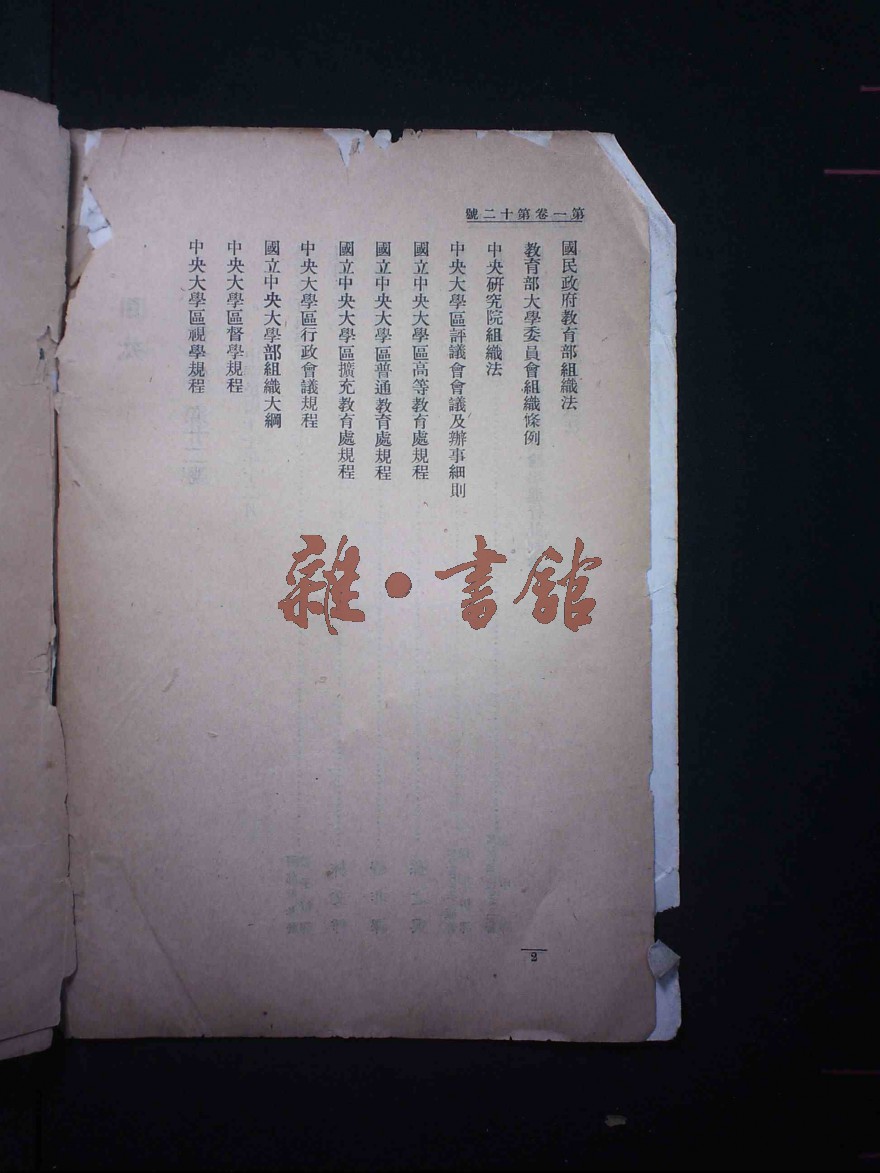 第一卷第十二號
國民政府教育部組織法
教育部大學委員會組織條例
中央研究院組織法
中央大學區評議會會議及辦事細則
國立中央大學區高等教育處規程
國立中央大學區普通教育處規程
國立中央大學區擴充教育處規程
中央大學區行政會議規程
國立中央大學部組織大綱
中央大學區督學規程
中央大學區視學規程
雜·書館
2